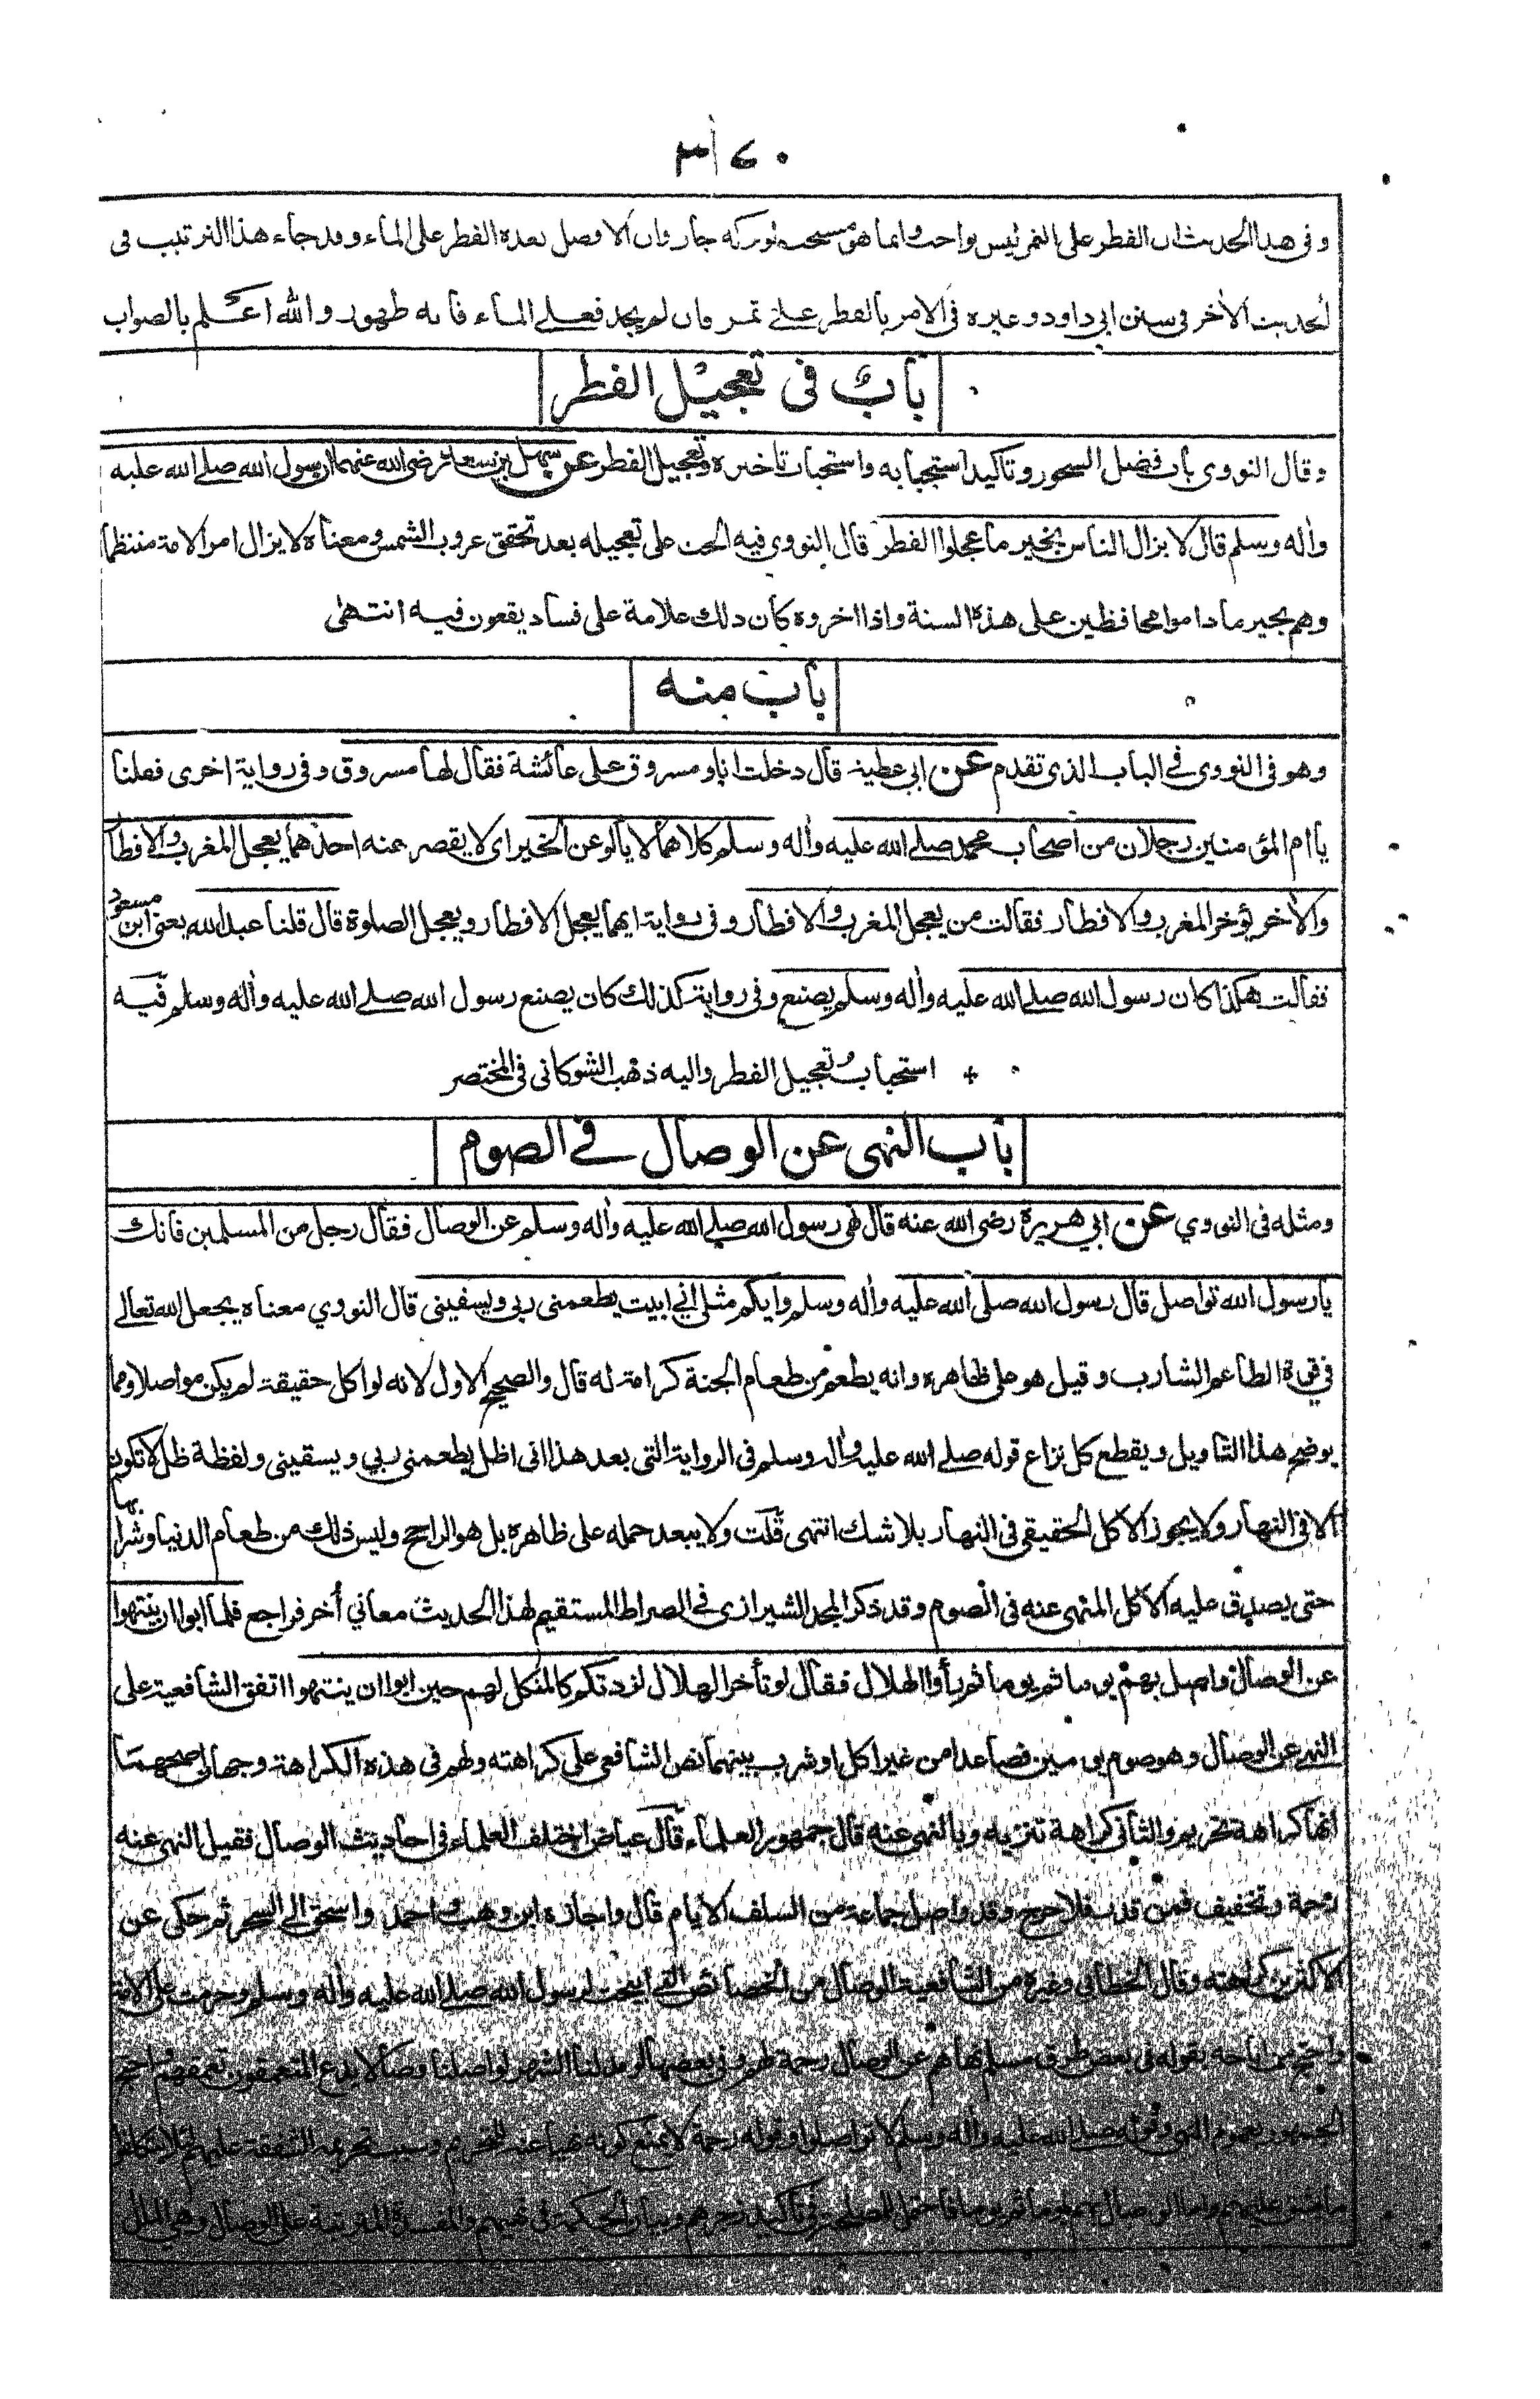 ٣٤٠
وفى هذا الحديث ان الفطر على التمر ليس بواجب وانما هو مستحب لو تركه جاز وان الافضل بعده الفطر على الماء وقد جاء هذا الترتيب فى
الحديث الأخر فى سنن ابى داود وغيره فى الامر بالفطر على تمر فان لم يجد فعلى الماء فانه طهور والله اعلم بالصواب
باب فى تعجيل الفطر
وقال النووى باب فضل السحور وتاكيد استحبابه واستحباب تاخيره وتعجيل الفطر عن سهل بن سعد رضى الله عنهما ان رسول الله صلى الله عليه
واله وسلم قال لا يزال الناس بخير ما عجلوا الفطر قال النووى فيه الحث على تعجيله بعد تحقق غروب الشمس ومعناه لا يزال امر الامة منتظما
وهم بخير ما داموا محافظين على هذه السنة واذا اخروه كان ذلك علامة على فساد يقعون فيه انتهى
باب منه
وهو فى النووى فى الباب الذى تقدم عن ابى عطية قال دخلت انا ومسروق على عائشة فقال لها مسروق وفى رواية اخرى فقلنا
يا ام المؤمنين رجلان من اصحاب محمد صلى الله عليه واله وسلم كلاهما لا يألو عن الخير اى لا يقصر عنه احدهما يعجل المغرب والافطار
والأخر يؤخر المغرب والافطار فقالت من يعجل المغرب والافطار وفى رواية ايهما يعجل الافطار ويعجل الصلوة قال قلنا عبد الله يعنى ابن مسعود
فقالت هكذا كان رسول الله صلى الله عليه واله وسلم يصنع وفى رواية كذلك كان يصنع رسول الله صلى الله عليه واله وسلم فيه
استحباب تعجيل الفطر واليه ذهب الشوكانى فى المختصر
باب النهى عن الوصال فى الصوم
ومثله فى النووي عن ابي هريرة رضى الله عنه قال نهى رسول الله صلى الله عليه واله وسلم عن الوصال فقال رجل من المسلمين فانك
يا رسول الله تواصل قال رسول الله صلى الله عليه واله وسلم وايكم مثلى اني ابيت يطعمنى ربى ويسقينى قال النووي معناه يجعل الله تعالى
في قوة الطاعم الشارب وقيل هو على ظاهره وانه يطعم من طعام الجنة كرامة له قال والصحيح الاول لانه لو اكل حقيقة لم يكن مواصلا ومما
يوضح هذا التاويل ويقطع كل نزاع قوله صلى الله عليه واله وسلم فى الرواية التى بعد هذا انى اظل يطعمنى ربي ويسقينى ولفظة ظل لا تكون
الا فى النهار ولا يجوز الاكل الحقيقى فى النهار بلا شك انتهى قلت ولا يبعد حمله على ظاهره بل هو الراجح وليس ذلك من طعام الدنيا وشرابها
حتى يصدق عليه الاكل المنهى عنه فى الصوم وقد ذكر المجد الشيرازى فى الصراط المستقيم لهذا الحديث معاني أخر فراجع فلما ابوا ان ينتهوا
عن الوصال واصل بهم يوما ثم يوما ثم رأوا الهلال فقال لو تأخر الهلال لزدتكم كالمنكل لهم حين ابوا ان ينتهوا اتفق الشافعية على
النهى عن الوصال وهو صوم يومين فصاعدا من غير اكل او شرب بينهما نص الشافعى على كراهته ولهم فى هذه الكراهة وجهان اصحهما
انها كراهة تحريم والثانى كراهة تنزيه وبالنهى عنه قال جمهور العلماء قال عياض اختلف العلماء فى احاديث الوصال فقيل النهى عنه
رحمة وتخفيف فمن قدر فلا حرج وقد واصل جماعة من السلف الايام قال واجازه ابن وهب واحمد واسحق الى السحر ثم حكى عن
الاكثرين كراهته وقال الخطابى وغيره من الشافعية الوصال من الخصائص التى ابيحت لرسول الله صلى الله عليه واله وسلم وحرمت على الامة
واحتج من اباحه بقوله فى بعض طرق مسلم نهاهم عن الوصال رحمة لهم وفى بعضها لو مد لنا الشهر لواصلنا وصالا يدع المتعمقون تعمقهم واحتج
الجمهور بعموم النهى وقوله صلى الله عليه واله وسلم لا تواصلوا وقوله رحمة لا يمنع كونه نهيا عنه للتحريم وسبب تحريمه الشفقة عليهم لئلا يتكلفوا
ما يشق عليهم واما الوصال بهم يوما ثم يوما فاحتمل للمصلحة فى تاكيد زجرهم وبيان الحكمة فى نهيهم والمفسدة المترتبة على الوصال وهى الملل